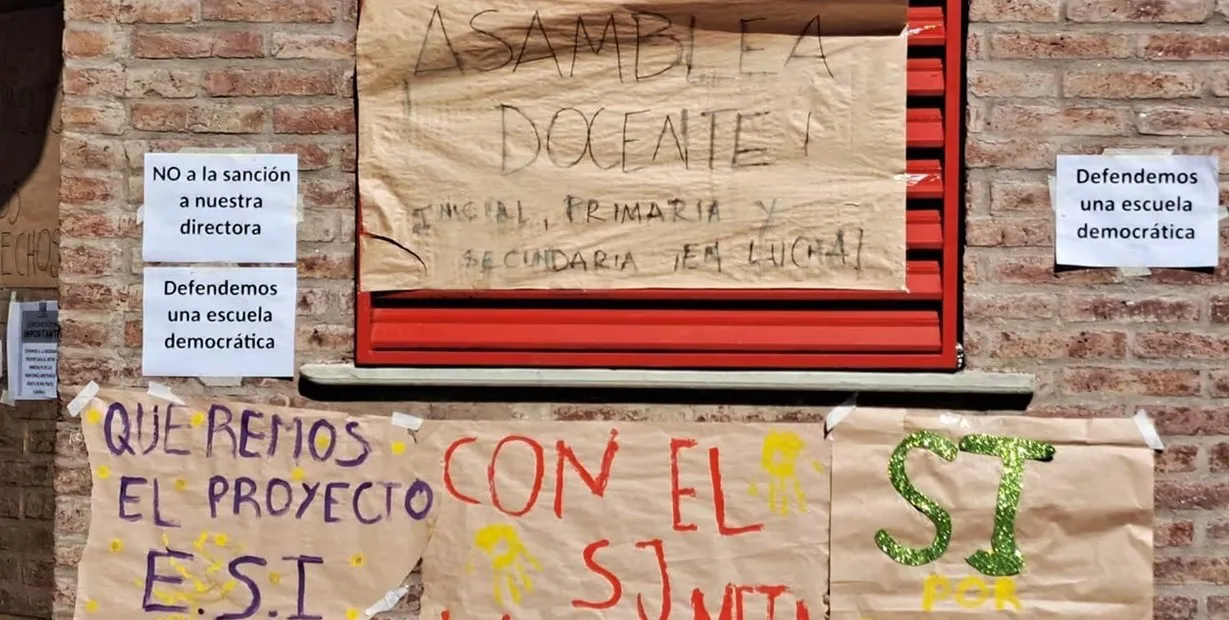 ASAMBLEA
DOCENTE!
INICIAL, PRIMARIA Y
SECUNDARIA ¡EN LUCHA!
NO a la sanción
a nuestra
directora
Defendemos
una escuela
democrática
Defendemos
una escuela
democrática
IMPORTANTE
QUEREMOS
EL PROYECTO
E.S.I
CON EL
SI
POR